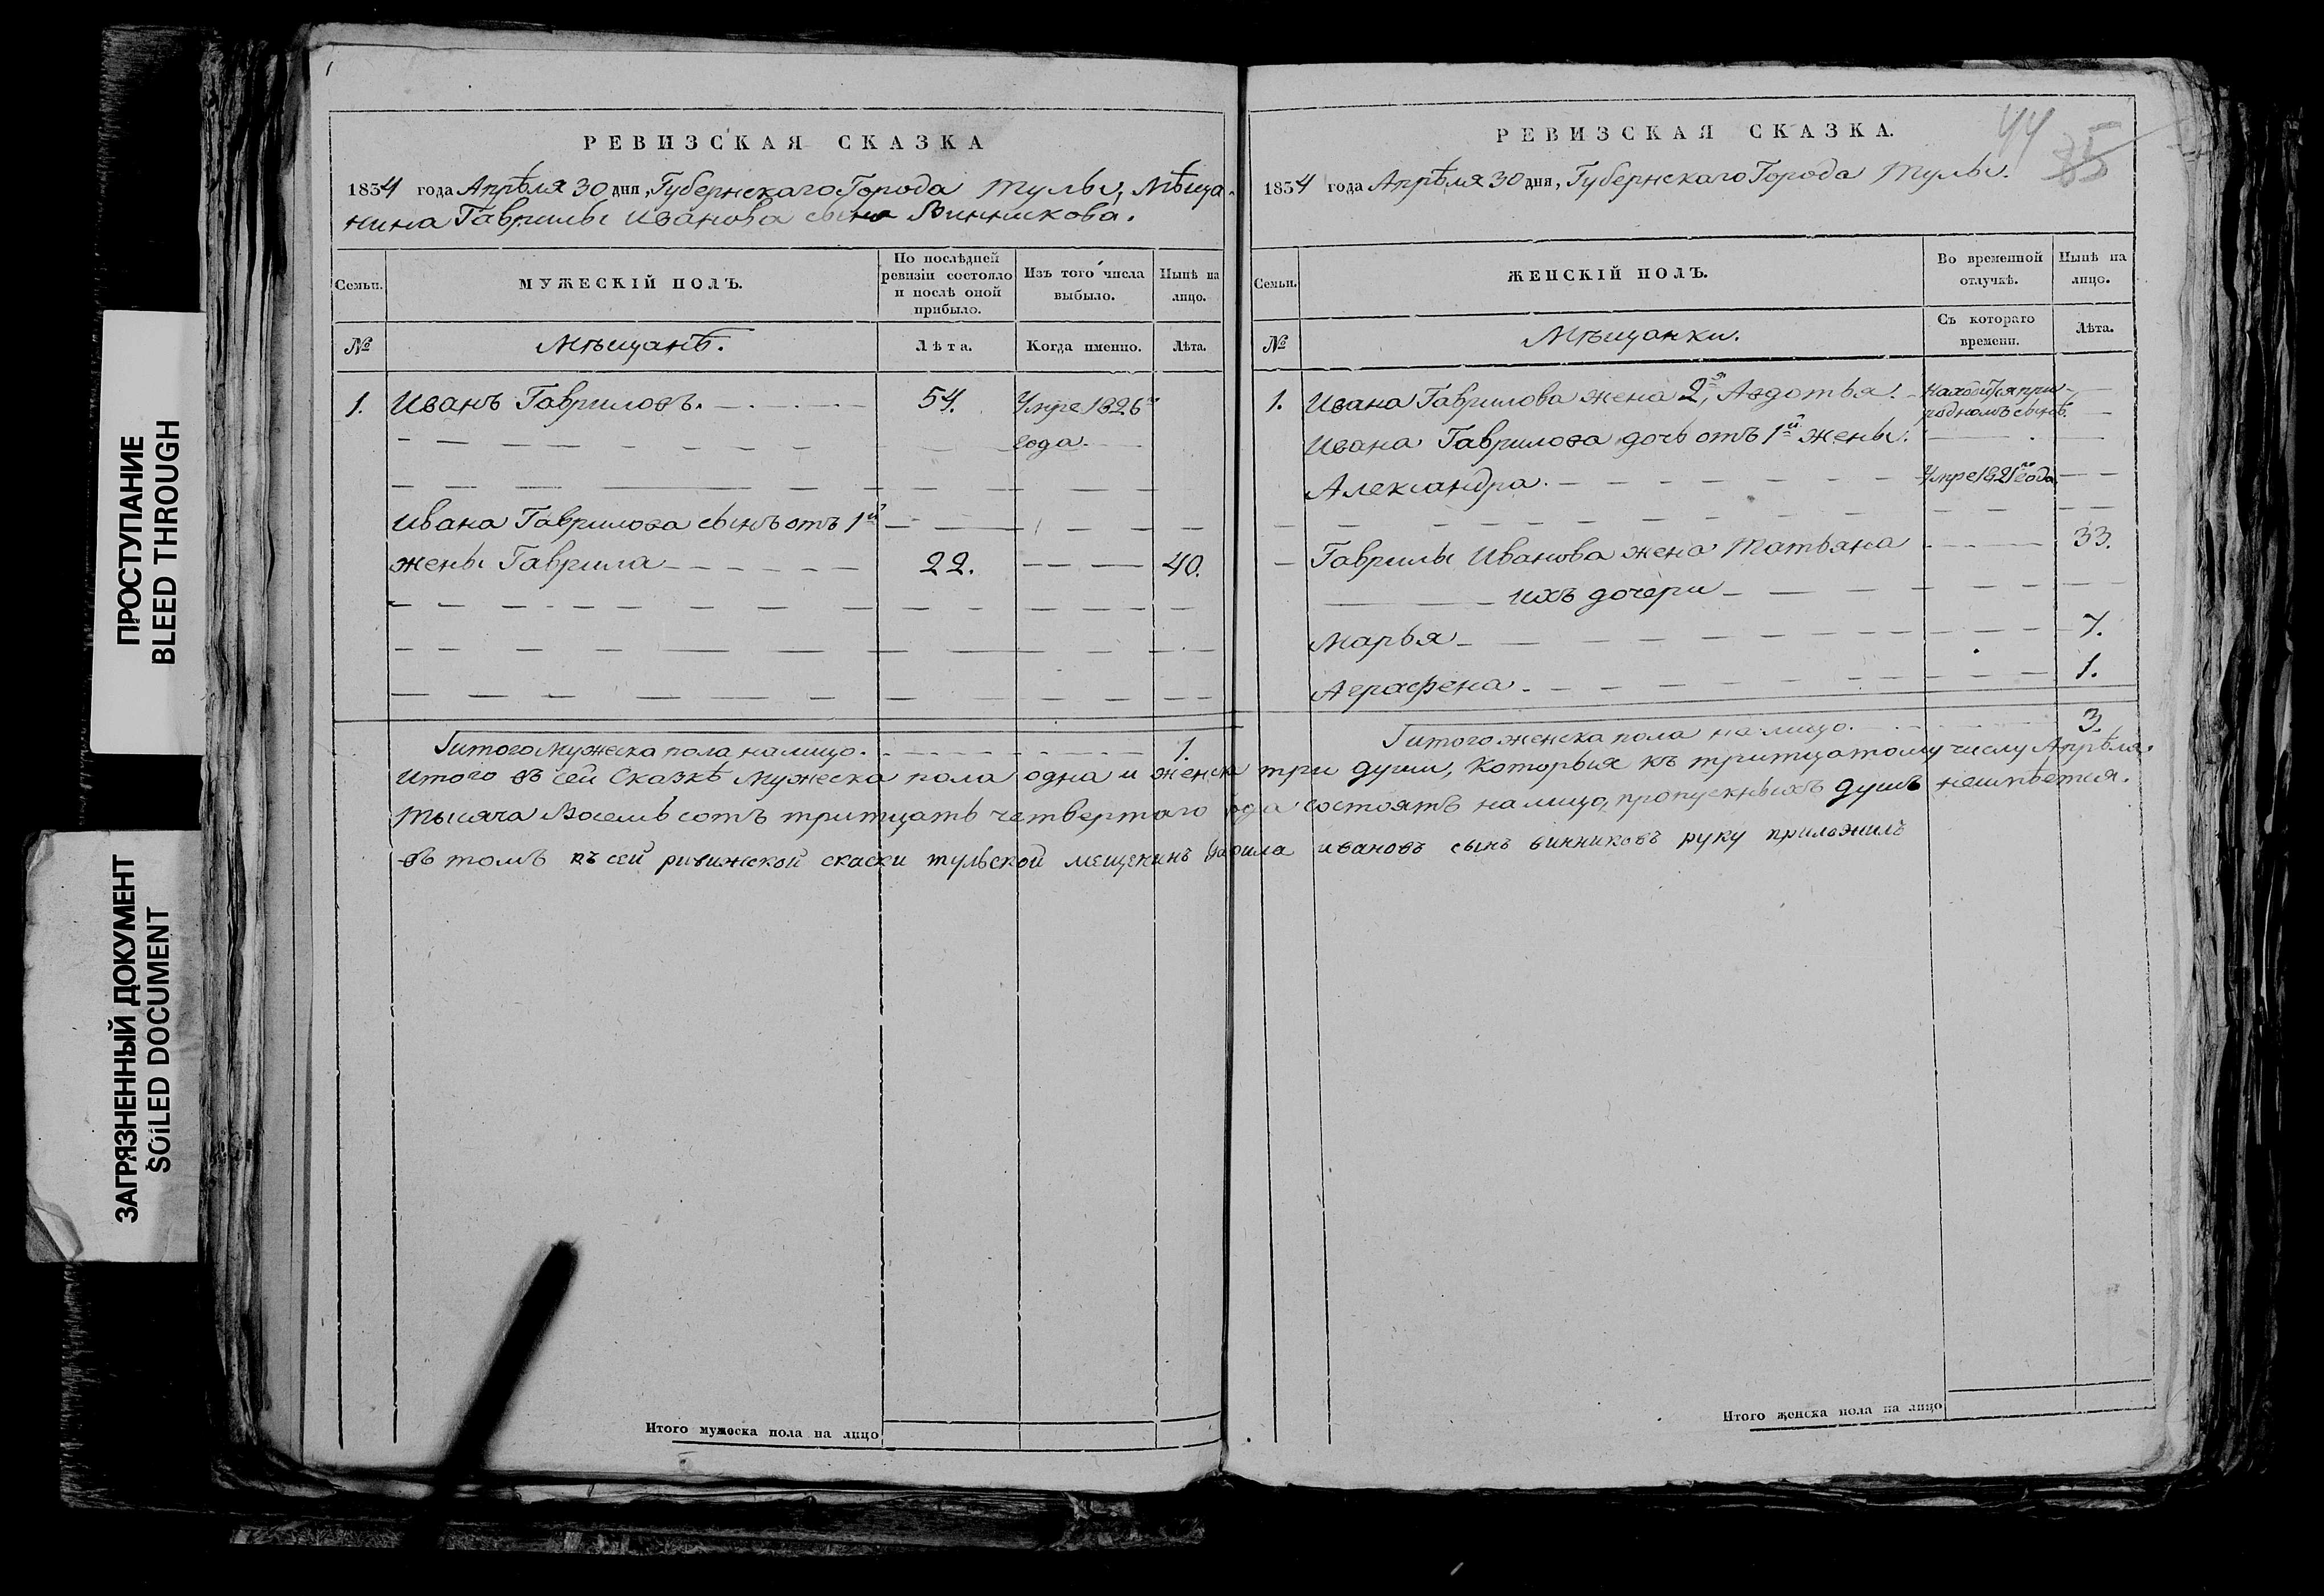 ПРОСТУПАНИЕ
BLEED THROUGH
ЗАГРЯЗНЕННЫЙ ДОКУМЕНТ
SOILED DOCUMENT
РЕВИЗСКАЯ СКАЗКА
1834 года Апрѣля 30 дня, Губернскаго Города Тулы, Мѣща-
нина Гаврилы Иванова сына Винникова.
Семьи.
МУЖЕСКІЙ ПОЛЪ.
По послѣдней
ревизіи состояло
и послѣ оной
прибыло.
Изъ того числа
выбыло.
Нынѣ на
лицо.
№
Мѣщанѣ.
Лѣта.
Когда именно.
Лѣта.
1. Иванъ Гавриловъ. 54. Умре 1826го
года.
Ивана Гаврилова сынъ отъ 1й
жены Гаврила 22. 40.
Итого Мужеска пола налицо. 1.
44
85
РЕВИЗСКАЯ СКАЗКА.
1834 года Апрѣля 30 дня, Губернскаго Города Тулы.
Семьи.
ЖЕНСКІЙ ПОЛЪ.
Во временной
отлучкѣ.
Нынѣ на
лицо.
№
Мѣщанки.
Съ котораго
времени.
Лѣта.
1. Ивана Гаврилова жена 2я, Авдотья. находится при
родномъ сынѣ.
Ивана Гаврилова дочь отъ 1й жены.
Александра. Умре 1821го года
Гаврилы Иванова жена Татьяна 33.
ихъ дочери
Марья 7.
Аграфена. 1.
Итого женска пола на лицо. 3.
Итого въ сей Сказкѣ Мужеска пола одна и женска три души, которыя къ тритцатому числу Апрѣля.
Тысяча Восемь сотъ тритцать четвертого года состоятъ налицо, пропускныхъ душъ неимѣется.
въ томъ къ сей ривижской скаски тульской мещенинъ Гаврила ивановъ сынъ винниковъ руку приложилъ
Итого мужеска пола на лицо
Итого женска пола на лицо